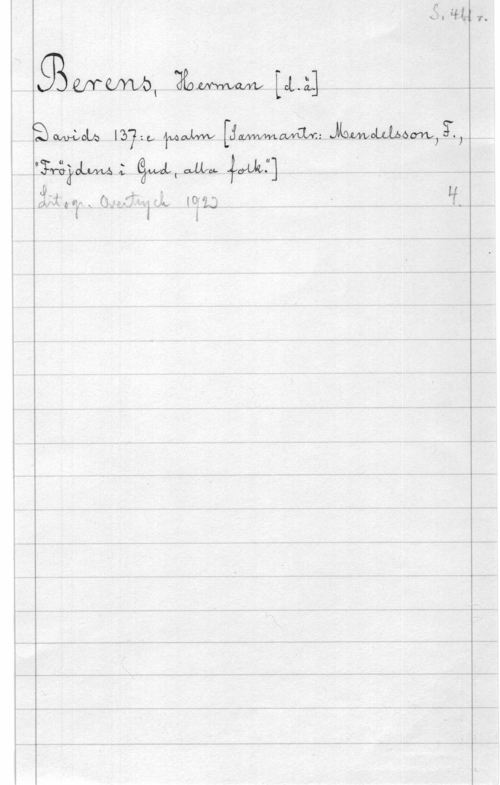 S. 461 r.
Berens, Herman [d.ä]
Davids 137:e psalm [Sammantr.: Mendelsson, F.,
"Fröjdens i Gud, alla folk."]
Litogr. Overtryck 1923
4.